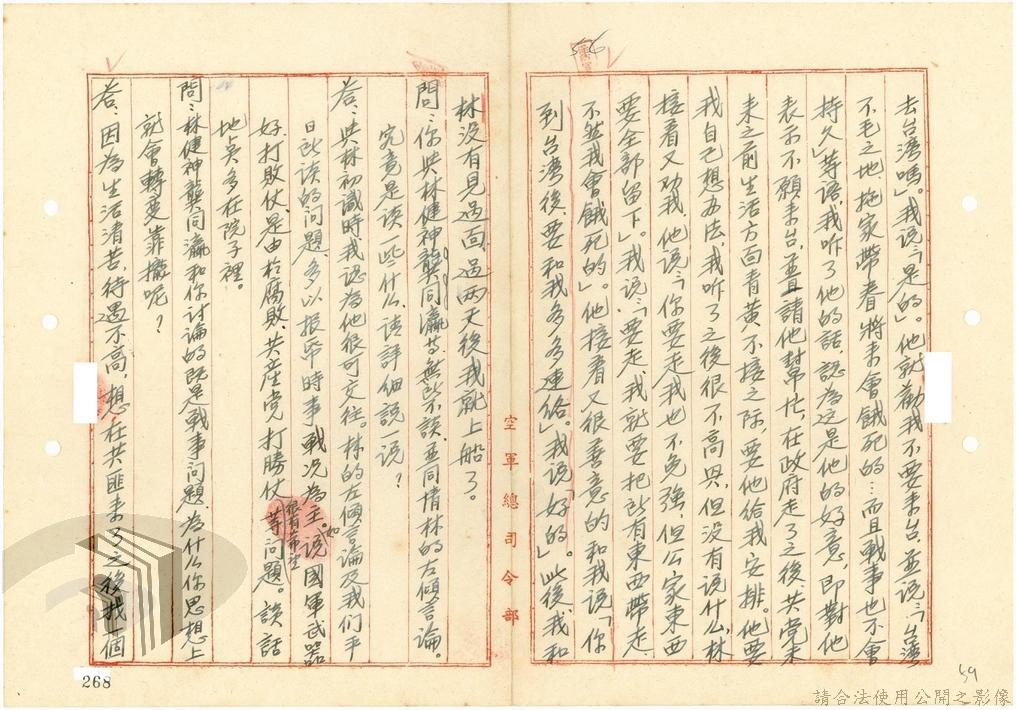 去台灣嗎」。我说:「是的」。他就勸我不要来台,並说:「台灣
不毛之地,拖家带眷將来會餓死的…而且戰事也不會
持久等語,我听了他的話,認為这是他的好意,即對他
表示不願来台,並請他幫忙,在政府走了之後,共党未
来之前生活方面青黄不接之际,要他给我安排。他要
我自己想办法,我听了之後很不高兴,但没有说什么,林
接着又劝我,他说:「你要走我也不免強,但公家東西
要全部留下」。我说:「要走,我就要把所有東西帶走,
不然我會餓死的」。他接着又很善意的和我说「你
到台湾後,要和我多多連络」。我说「好的」。此後,我和
空軍總司令部
林没有見过面,过两天後我就上船了。
問:你與林健神龔同瀛等,無所不談,並同情林的左傾言論。
究竟是谈一些什么,請詳細説一说?
答:與林初識時我認為他很可交往。林的左傾言論及我们平
日所谈的问題,多以报紙時事戰况為主。如说國軍武器
好,打敗仗,是由於腐敗、共產党打勝仗很有希望等问題。談話
地点多在院子裡。
問:林健神龔同瀛和你讨論的既是戰事问題,為什么你思想上
就會轉变靠攏呢?
答:因為生活清苦,待遇不高,想在共匪来了之後找一個
268
59
請合法使用公開之影像